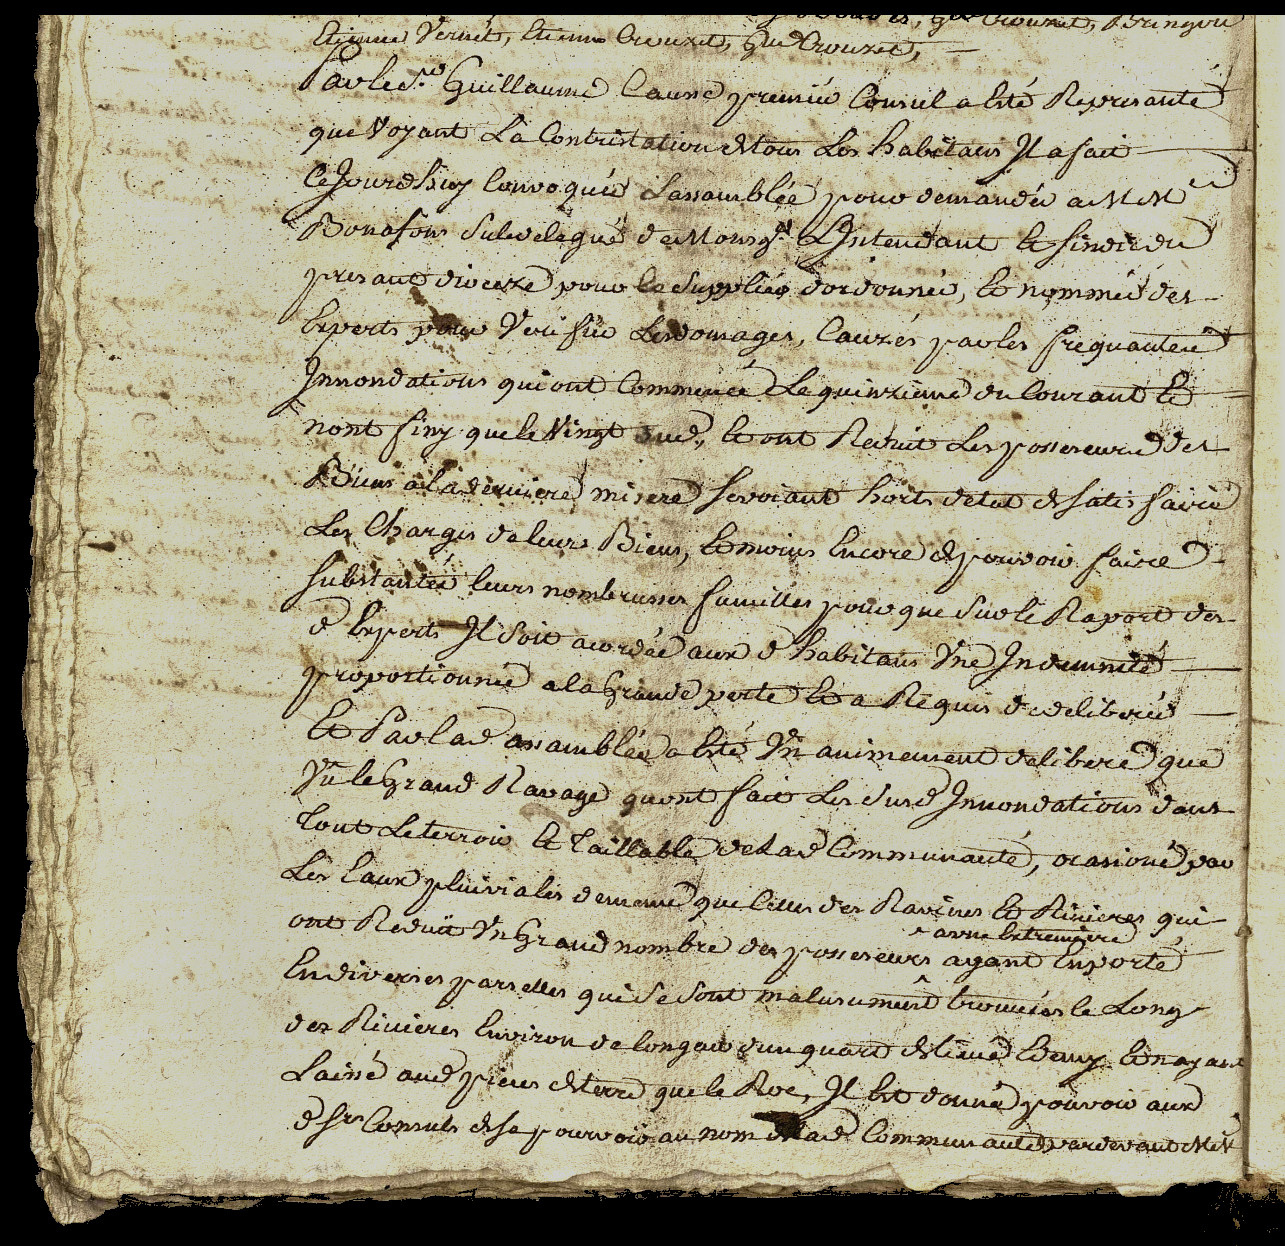 Etienne Vernét, Etienne Crouzet, Gme Crouzet,
Par le Sr. Guillaume Causse premiér Consul a Esté Represanté
que Voyant La Contristation de tous Les habitans Il a fait
Ce Jourdhuy Convoquér Lassamblée pour demandér a MMrs
Bonafous Subdelegué de Monsgr. L'Intendant Et sindic du
presant dioceze pour le Supplier dordonnér, Et nommér des
Experts pour Veriffiér Les domages, Cauzés par les frequantes
Innondations qui ont Commencé Le quinziéme du Courant Et
nont finy que le Vingt , Et ont Reduit Les possesseurs des
Biens a la derniere misere se voiant horts detat de satisfaire
Les Charges de leurs Biens, Et moins Encore de pouvoir faire
substantér leurs nombruses familles pour que sur le Raport des
d Experts Il soit acordée aux d habitans Une Indemnité
proportionnée a la Grande perte Et a Requis de deliberér
Et Par lad assamblée a Esté Unanimement deliberé que
Vu le Grand Ravage quont fait Les susd Innondations dans
tout Le terroir Et Taillable de Lad Communauté, ocasioné par
Les Eaux pluvialés de meme que Celles des Ravines Et Rivieres qui
ont Reduit Un Grand nombre des possesseurs a une Extremi miseré ayant Enporté
En diverses parselles qui se sont malurusement trouvées le Long
des Rivieres Environ de longeur dun quart de Lieue Et demy Et nayant
Laissé aud pieces de terre que le Roc, Il Est donné pouvoir aux
d Srs Consuls de se pourvoir au nom de Lad Communauté pardevant MMrs